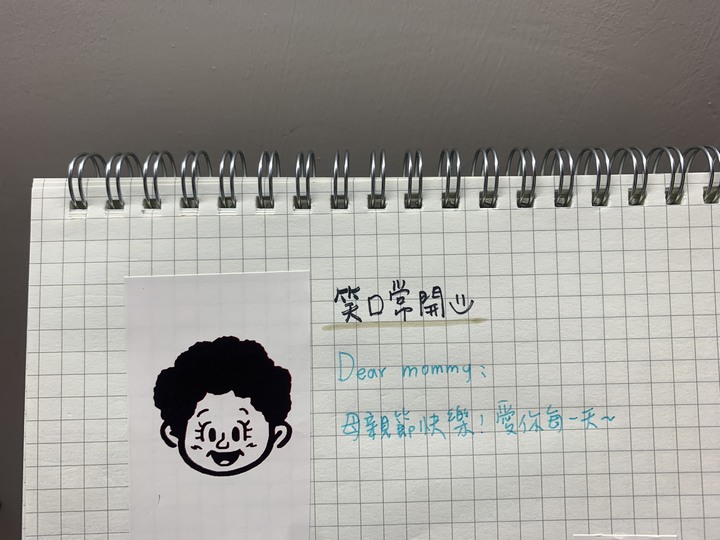 笑口常開
Dear mommy:
母親節快樂!愛你每一天~